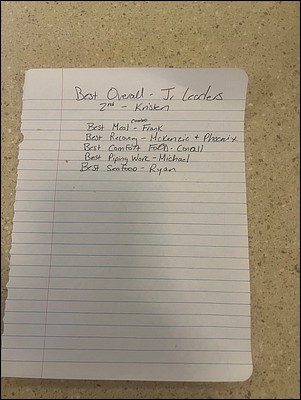 Best Overall - Jr Leaders
2nd - Kristen
Combo
Best Meal - Frank
Best Recovery - Mckenzie + Phoenix
Best Comfort Food - Conall
Best Piping Work - Michael
Best Seafood - Ryan